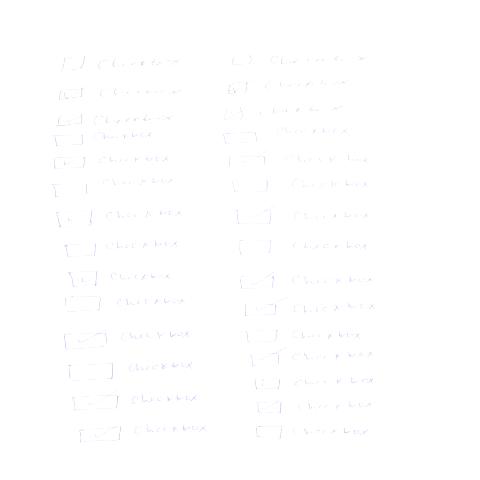 Checkbox
Checkbox
Checkbox
Checkbox
Checkbox
Checkbox
Checkbox
Checkbox
Checkbox
Checkbox
Checkbox
Checkbox
Checkbox
Checkbox
Checkbox
Checkbox
Checkbox
Checkbox
Checkbox
Checkbox
Checkbox
Checkbox
Checkbox
Checkbox
Checkbox
Checkbox
Checkbox
Checkbox
Checkbox